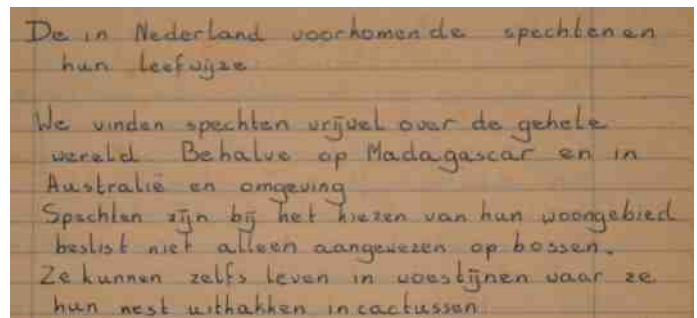 De in Nederland voorkomende spechten en
hun leefwijze
We vinden spechten vrijwel over de gehele
wereld. Behalve op Madagascar en in
Australië en omgeving
Spechten zijn bij het kiezen van hun woongebied
beslist niet alleen aangewezen op bossen.
Ze kunnen zelfs leven in woestijnen waar ze
hun nest uithakken in cactussen